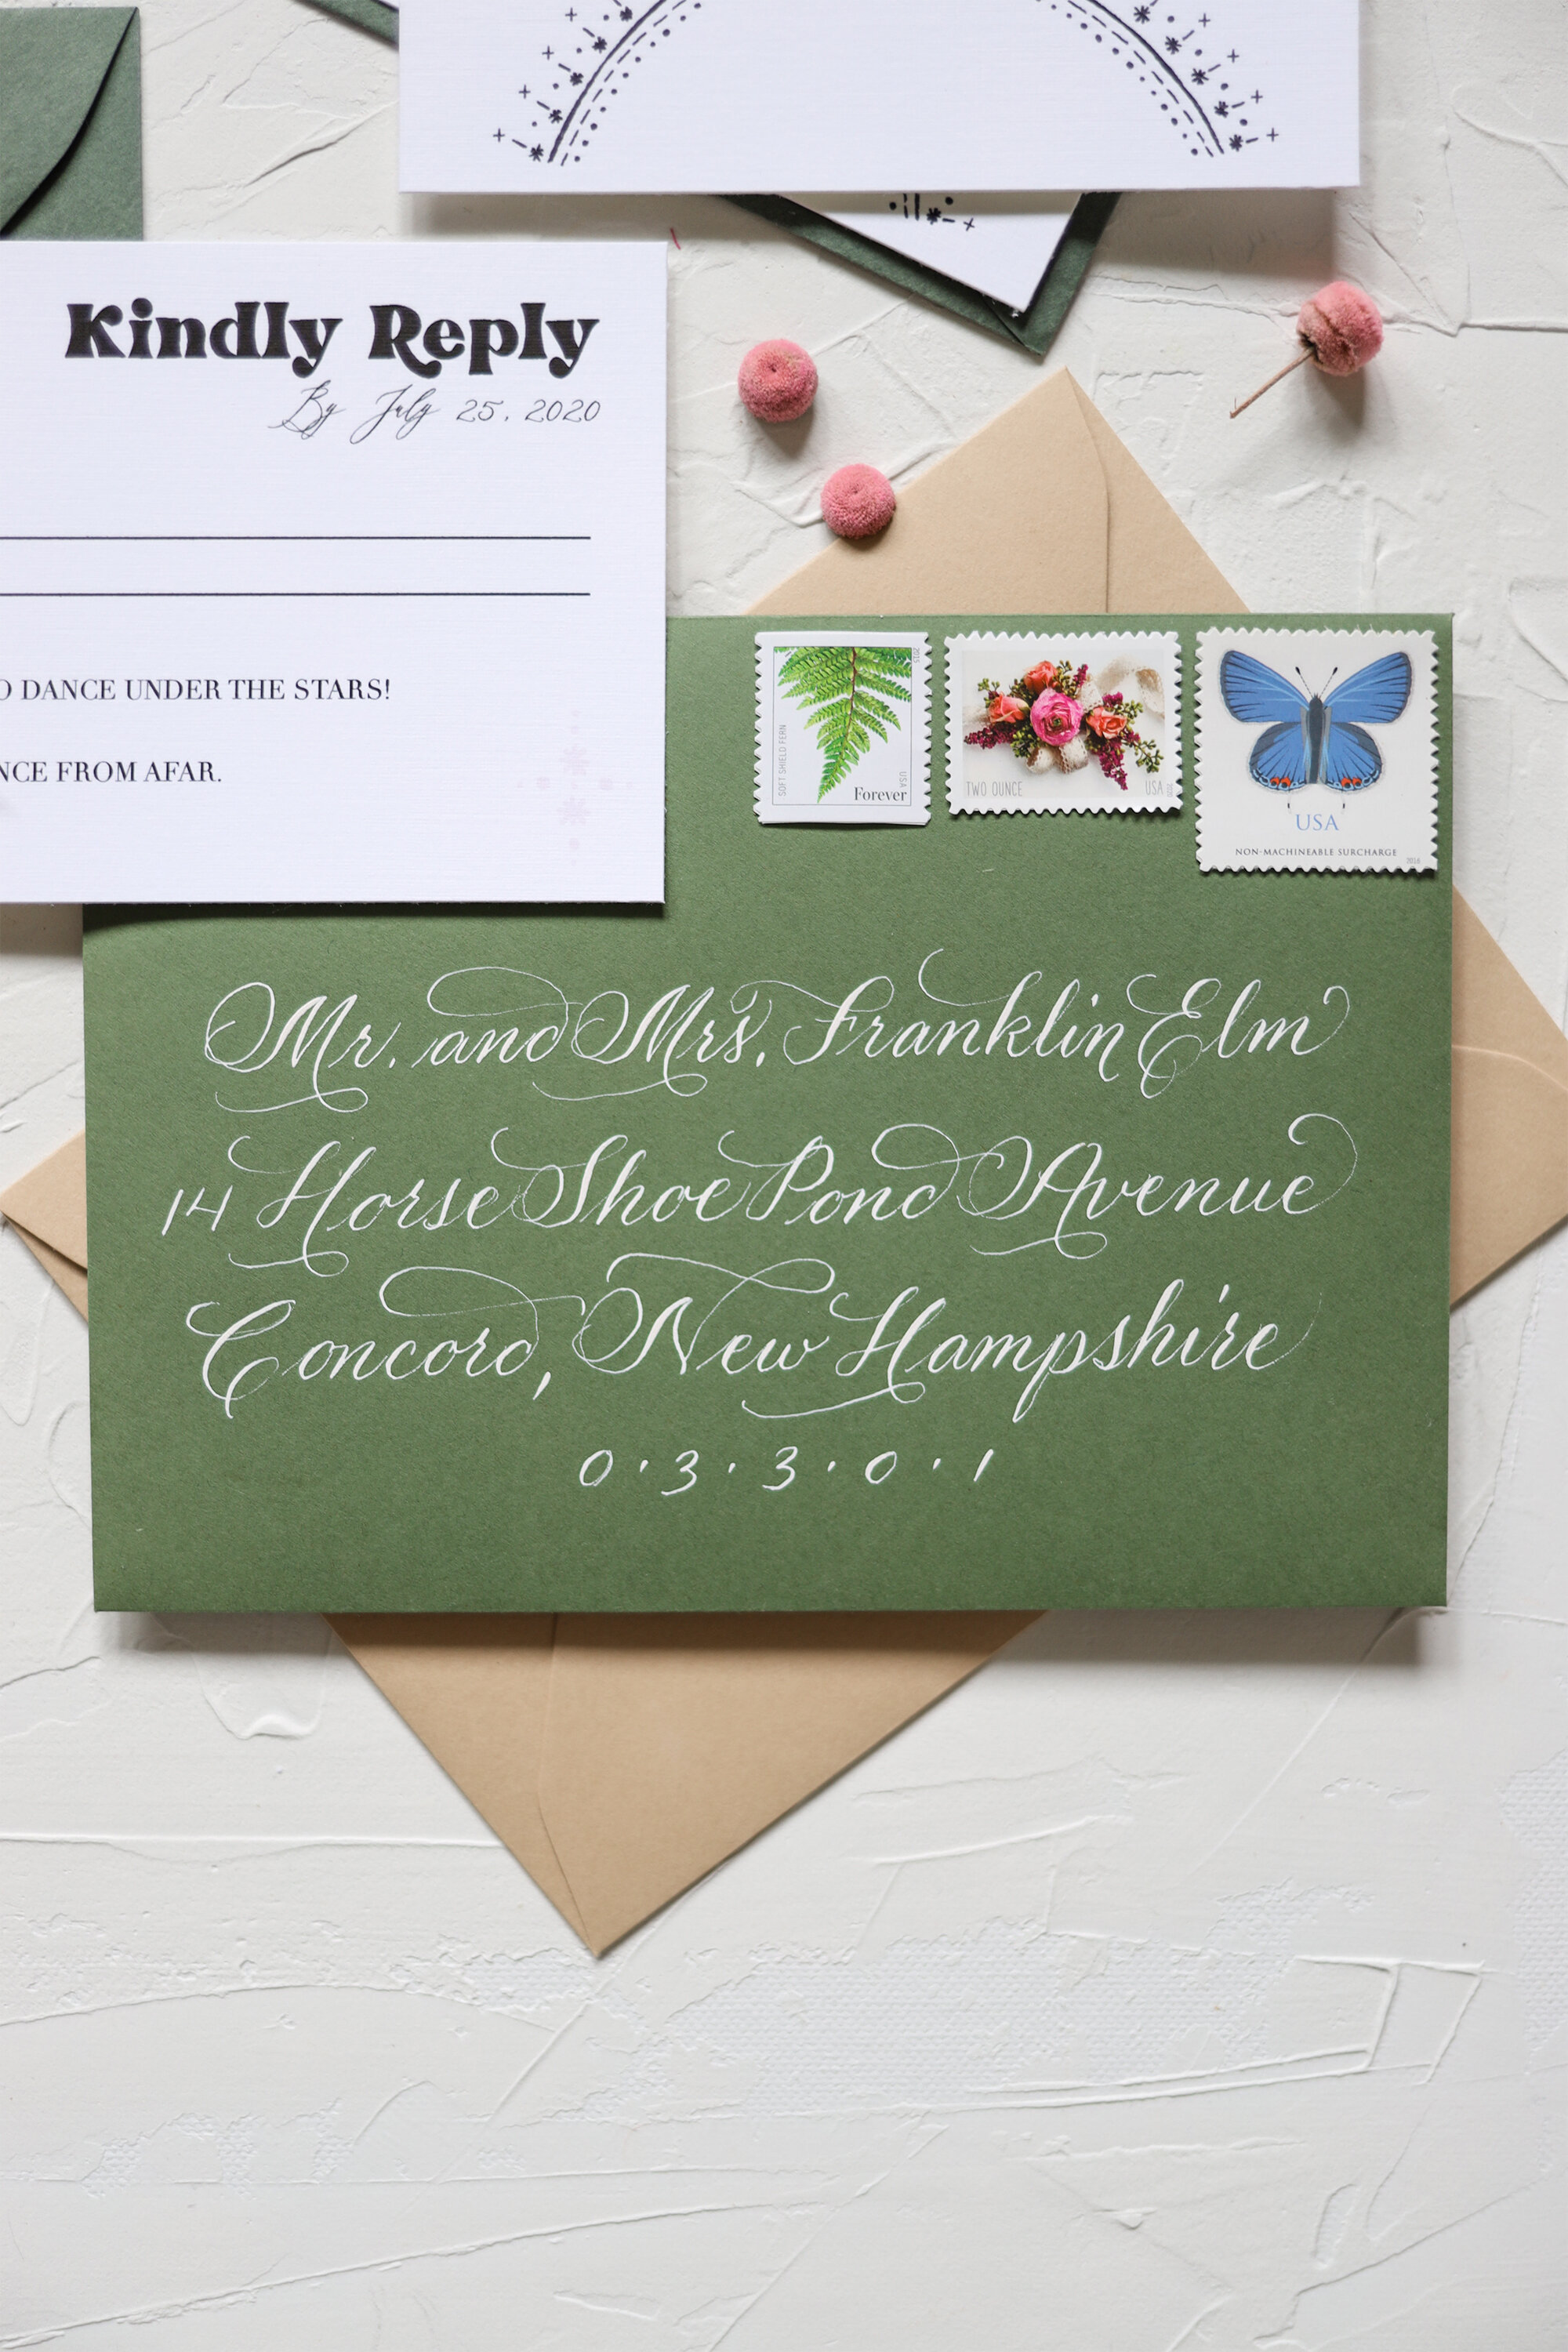 Kindly Reply
By July 25, 2020
O DANCE UNDER THE STARS!
NCE FROM AFAR.
2015
SOFT SHIELD FERN
USA
Forever
TWO OUNCE
USA
USA
NON-MACHINEABLE SURCHARGE
2016
Mr. and Mrs. Franklin Elm
14 Horse Shoe Pond Avenue
Concord, New Hampshire
0·3·3·0·1